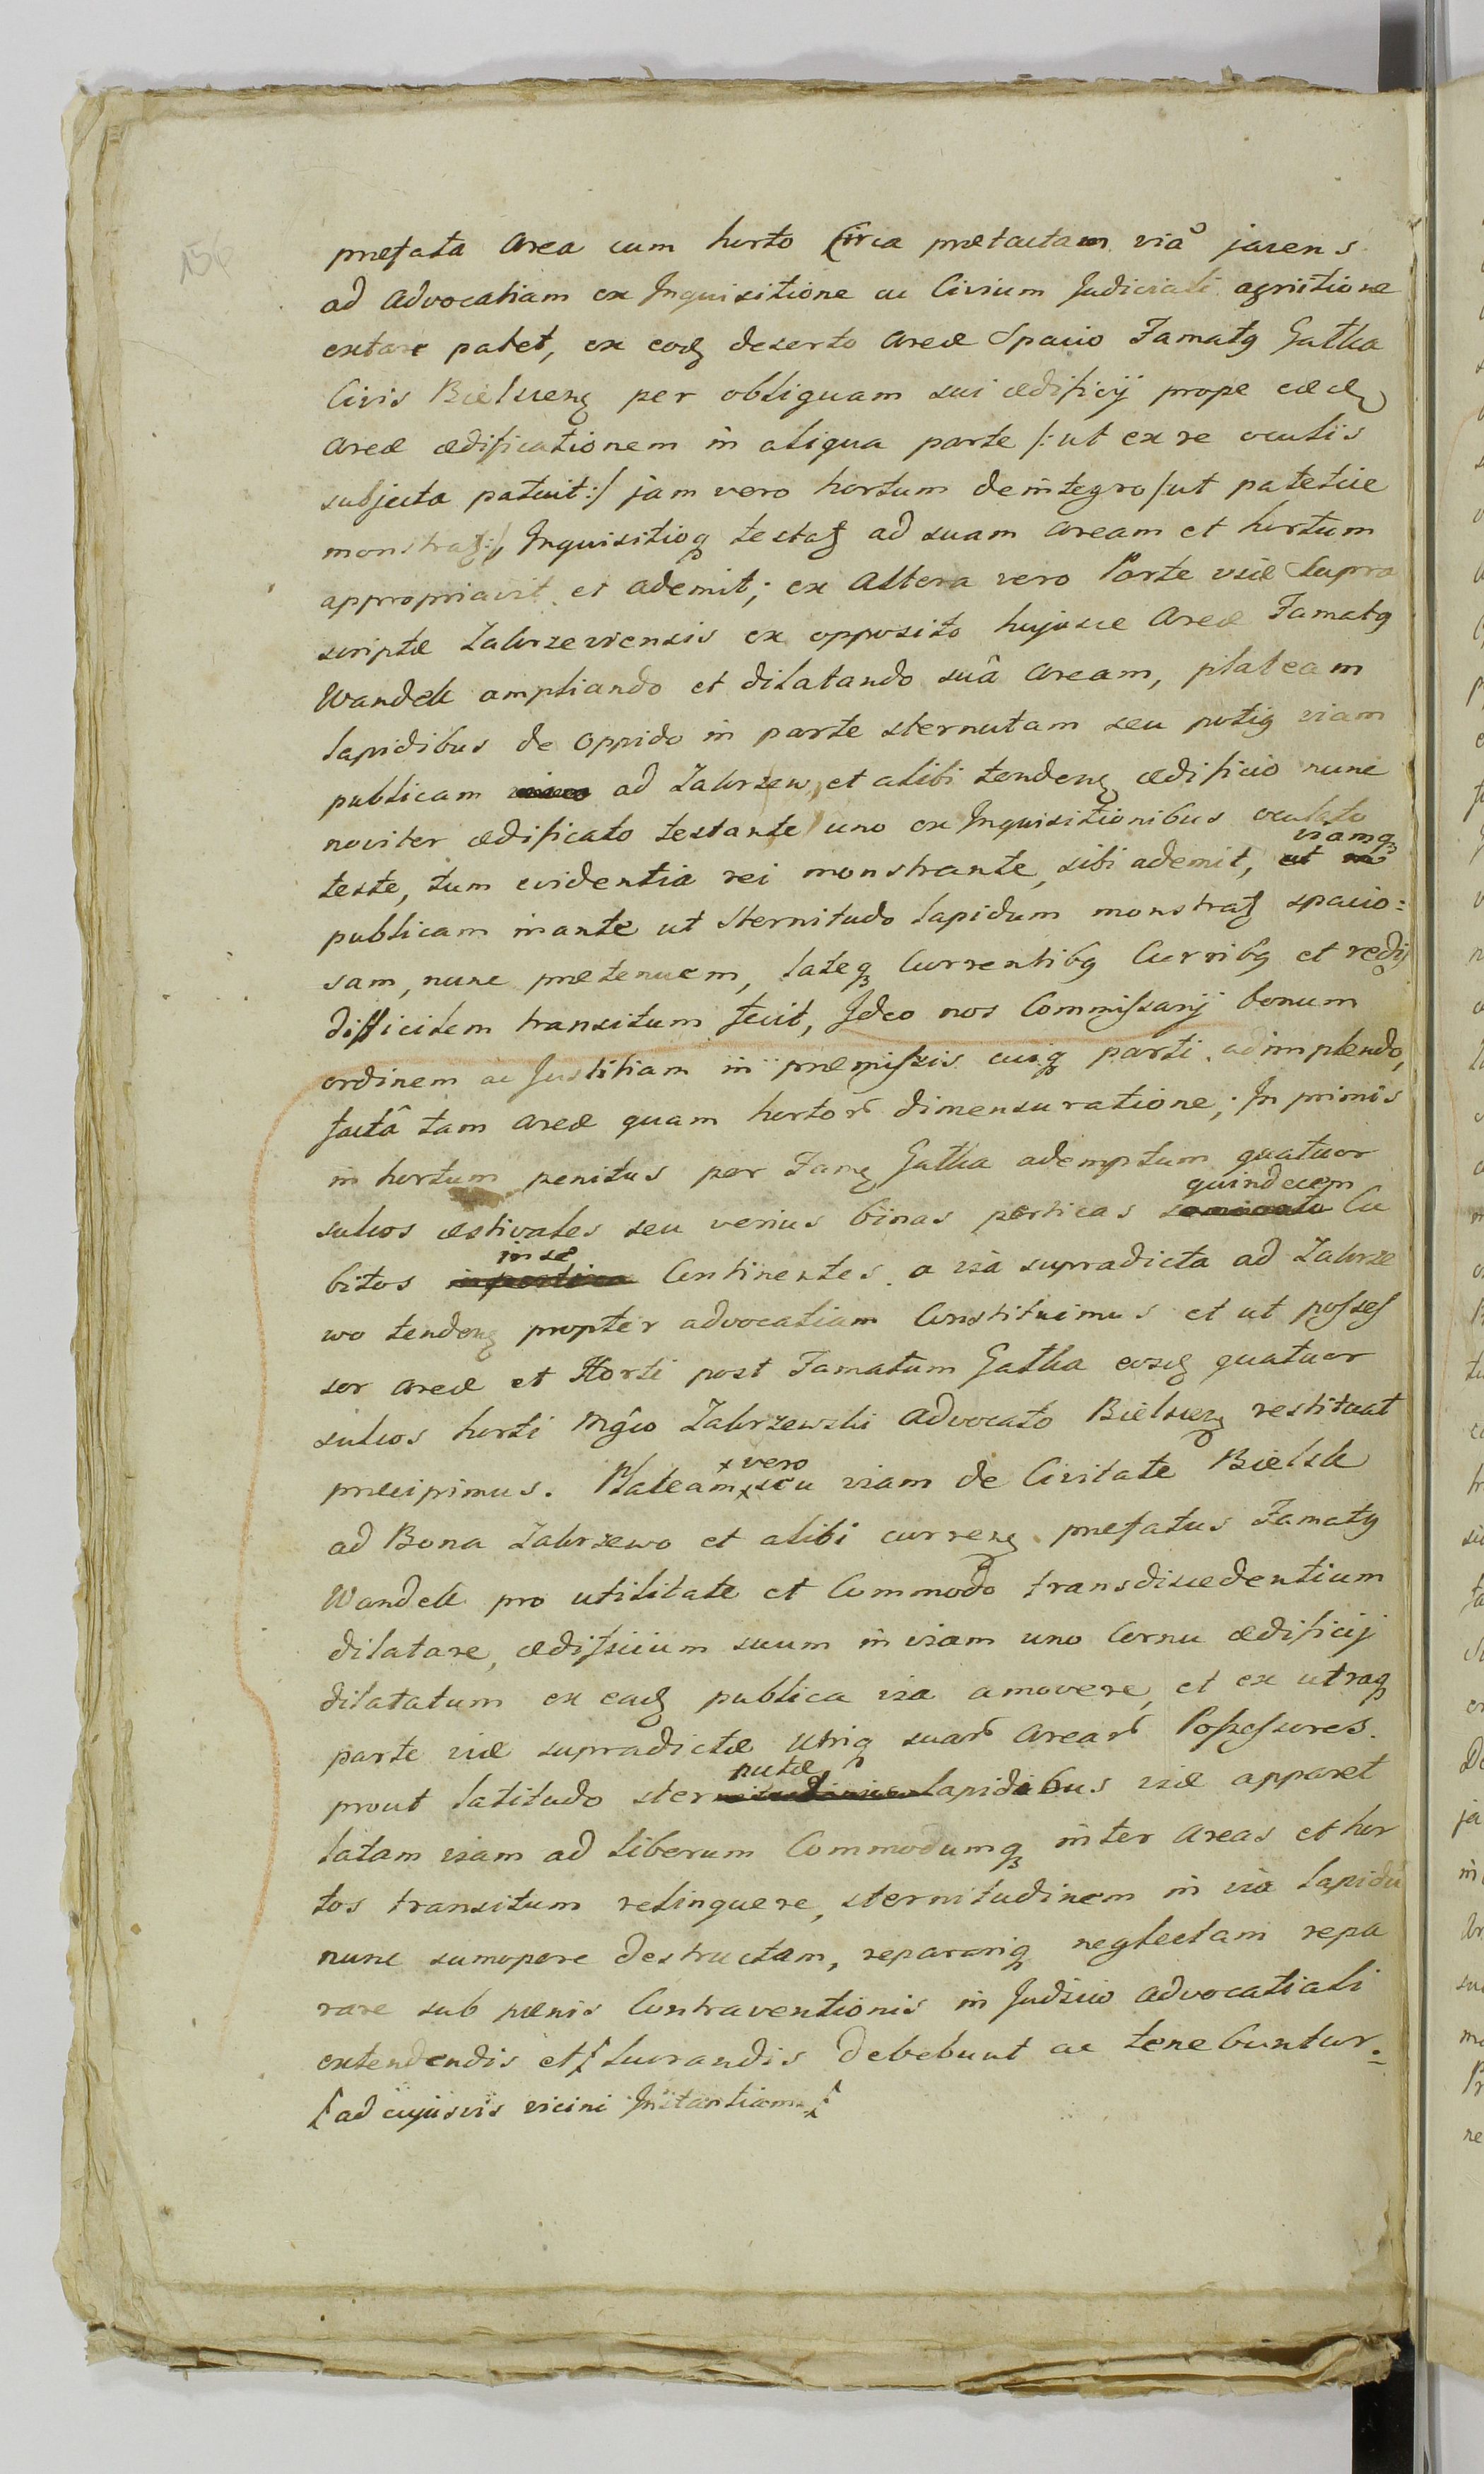 156
præfata Area cum horto Circa prætactam via͠ jacens
ad Advocatiam ex Inquisitione ac Civium Judiciali agnitione
extare patet, ex eodꝫ deserto Areæ Spacio Famatꝯ Gatka
Civis Bielscenꝫ per obliquam sui ædificij prope eædꝫ
Areæ ædificationem in aliqua parte /: ut ex re oculis
subjecta patuit :/ jam vero hortum de integro / ut patetice
monstratꝫ :/ Inquisitioqꝫ testatꝫ ad suam Aream et hortum
appropriavit et Ademit; ex Altera vero Parte viæ Supra
scriptæ Zakrzeviensis ex opposito hujusce Areæ Famatꝯ
Wandek ampliando et dilatando suâ Aream, plateam
lapidibus de Oppido in parte sternutam seu potiꝯ viam
publicam ad Zakrzew, et alibi tendenꝫ ædificio nunc
noviter ædificato testante uno ex Inquisitionibus oculato
teste, tum evidentia rei monstrante, sibi ademit, viamqꝫ
publicam inante ut Sternitudo lapidum monstratꝫ spacio=
sam, nunc prætenuem, lateqꝫ Currentibꝯ Curribꝯ et redis
difficilem transitum fecit, Ideo nos Commissarij bonum
ordinem ac Justitiam in præmissis cuiqꝫ parti adimplendo,
factâ tam Areæ quam hortor͠ dimensuratione; In primis
in hortum penitus per Famꝫ Gatka ademptum quatuor
sulcos æstivales seu verius binas perticas quindecem Cu
bitos in se Continentes a via supradicta ad Zakrze
wo tendenꝫ propter advocatiam Constituimus et ut posses
sor Areæ et Horti post Famatum Gatka eosdꝫ quatuor
sulcos horti Mgĉo Zakrzewski Advocato Bielscenꝫ restituat
præcipimus. Plateam vero seu viam de Civitate Bielsk
ad Bona Zakrzewo et alibi currenꝫ præfatus Famatꝯ
Wandek pro utilitate et Commodo transdiscedentium
dilatare, ædificium suum in viam uno Cornu ædificij
dilatatum ex eadꝫ publica via amovere, et ex utraqꝫ
parte viæ supradictæ Utriqꝫ suar͠ Arear͠ Possessores
prout latitudo sternutæ lapidibus viæ apparet
latam viam ad liberum Commodumqꝫ inter Areas et hor
tos transitum relinquere, sternitudinem in via lapidu͠
nunc sumopere destructam, reparariqꝫ neglectam repa
rare sub pænis Contraventionis in Judicio Advocatiali
extendendis et [ luxrandis debebunt ac tenebuntur.
[ ad cujusvis vicini Instantiam. [